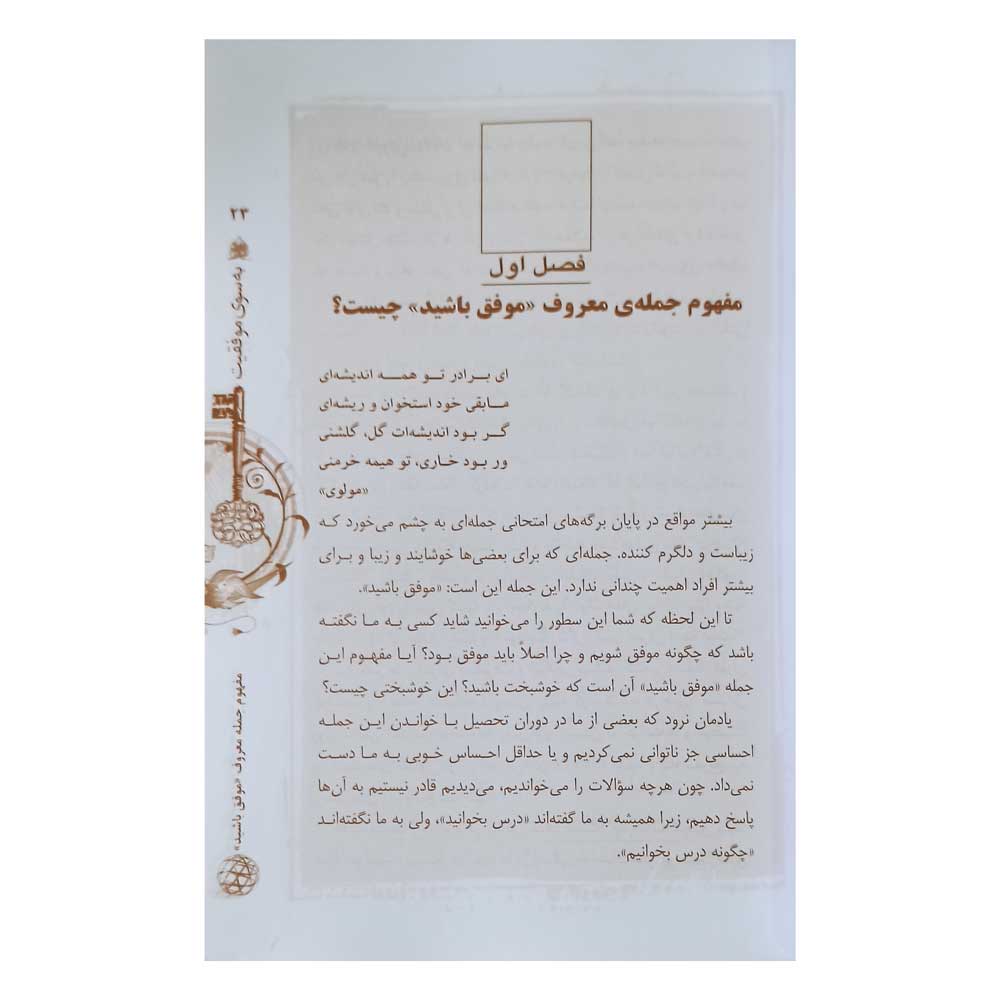 ۲۳
به سوی موفقیت
مفهوم جمله معروف «موفق باشید»
فصل اول
مفهوم جمله‌ی معروف «موفق باشید» چیست؟
ای برادر تو همه اندیشه‌ای
مابقی خود استخوان و ریشه‌ای
گر بود اندیشه‌ات گل، گلشنی
ور بود خاری، تو هیمه خرمنی
«مولوی»
بیشتر مواقع در پایان برگه‌های امتحانی جمله‌ای به چشم می‌خورد که
زیباست و دلگرم کننده. جمله‌ای که برای بعضی‌ها خوشایند و زیبا و برای
بیشتر افراد اهمیت چندانی ندارد. این جمله این است: «موفق باشید».
تا این لحظه که شما این سطور را می‌خوانید شاید کسی به ما نگفته
باشد که چگونه موفق شویم و چرا اصلاً باید موفق بود؟ آیا مفهوم این
جمله «موفق باشید» آن است که خوشبخت باشید؟ این خوشبختی چیست؟
یادمان نرود که بعضی از ما در دوران تحصیل با خواندن این جمله
احساسی جز ناتوانی نمی‌کردیم و یا حداقل احساس خوبی به ما دست
نمی‌داد. چون هرچه سؤالات را می‌خواندیم، می‌دیدیم قادر نیستیم به آن‌ها
پاسخ دهیم، زیرا همیشه به ما گفته‌اند «درس بخوانید»، ولی به ما نگفته‌اند
«چگونه درس بخوانیم».